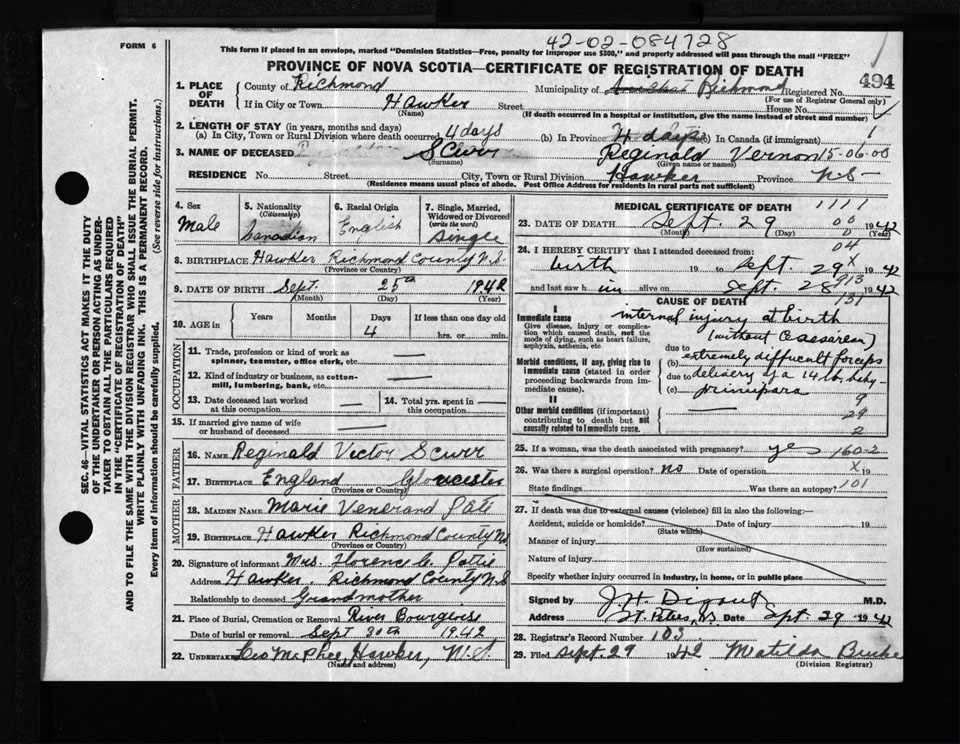 42-02-084728
FORM 6
This form if placed in an envelope, marked "Dominion Statistics—Free, penalty for improper use $300," and properly addressed will pass through the mail "FREE"
PROVINCE OF NOVA SCOTIA—CERTIFICATE OF REGISTRATION OF DEATH
494
1. PLACE OF DEATH County of Richmond Municipality of Richmond Registered No.
(For use of Registrar General only)
If in City or Town Hawker Street House No.
(Name) (If death occurred in hospital or institution, give the name instead of street and number)
2. LENGTH OF STAY (in years, months and days)
(a) In City, Town or Rural Division where death occurred 4 days (b) In Province 4 days (c) In Canada (if immigrant)
3. NAME OF DECEASED Scurr Reginald Vernon 15-06-00
(Surname) (Given name or names)
RESIDENCE No. Street City, Town or Rural Division Hawker Province N.S.
(Residence means usual place of abode. Post Office Address for residents in rural parts not sufficient)
4. Sex Male
5. Nationality (Citizenship) Canadian
6. Racial Origin English
7. Single, Married, Widowed or Divorced (write the word) Single
8. BIRTHPLACE Hawker Richmond County N.S.
(Province or Country)
9. DATE OF BIRTH Sept. 25th 1942
(Month) (Day) (Year)
10. AGE in Years Months Days If less than one day old
4 hrs. or min.
OCCUPATION
11. Trade, profession or kind of work as spinner, teamster, office clerk, etc.
12. Kind of industry or business, as cotton-mill, lumbering, bank, etc.
13. Date deceased last worked at this occupation
14. Total yrs. spent in this occupation
15. If married give name of wife or husband of deceased
FATHER
16. NAME Reginald Victor Scurr
17. BIRTHPLACE England Gloucester
(Province or Country)
MOTHER
18. MAIDEN NAME Marie Venerand
19. BIRTHPLACE Hawker Richmond County N.S.
(Province or Country)
20. Signature of informant Mrs. Florence C.
Address Hawker, Richmond County N.S.
Relationship to deceased Grandmother
21. Place of Burial, Cremation or Removal River Bourgeoise
Date of burial or removal Sept 30th 1942
22. UNDERTAKER Leo McPhee, Hawker, N.S.
(Name and address)
MEDICAL CERTIFICATE OF DEATH
1111
23. DATE OF DEATH Sept. 29 1942
(Month) (Day) (Year)
24. I HEREBY CERTIFY that I attended deceased from:
birth 19 to Sept. 29 1942
and last saw h im alive on Sept. 28 1942
CAUSE OF DEATH
I
Immediate cause
Give disease, injury or complication which caused death, not the mode of dying, such as heart failure, asphyxia, asthenia, etc.
internal injury at birth
(without Caesarean)
due to
Morbid conditions, if any, giving rise to immediate cause (stated in order proceeding backwards from immediate cause).
(b) extremely difficult forceps
due to delivery of a 14 lb. baby-
(c) primipara
II
Other morbid conditions (if important) contributing to death but not causally related to immediate cause.
9
29
2
25. If a woman, was the death associated with pregnancy? yes 160-2
26. Was there a surgical operation? no Date of operation 19
State findings Was there an autopsy? 101
27. If death was due to external causes (violence) fill in also the following:—
Accident, suicide or homicide? Date of injury 19
(State which)
Manner of injury
(How sustained)
Nature of injury
Specify whether injury occurred in industry, in home, or in public place
Signed by J. H. Digout M.D.
Address St. Peters, N.S. Date Sept. 29 1942
28. Registrar's Record Number 103
29. Filed Sept. 29 1942 Matilda Burke
(Division Registrar)
SEC. 46—VITAL STATISTICS ACT MAKES IT THE DUTY
OF THE UNDERTAKER OR PERSON ACTING AS UNDER-
TAKER TO OBTAIN ALL THE PARTICULARS REQUIRED
IN THE "CERTIFICATE OF REGISTRATION OF DEATH"
AND TO FILE THE SAME WITH THE DIVISION REGISTRAR WHO SHALL ISSUE THE BURIAL PERMIT.
WRITE PLAINLY WITH UNFADING INK. THIS IS A PERMANENT RECORD.
Every item of information should be carefully supplied. (See reverse side for instructions.)